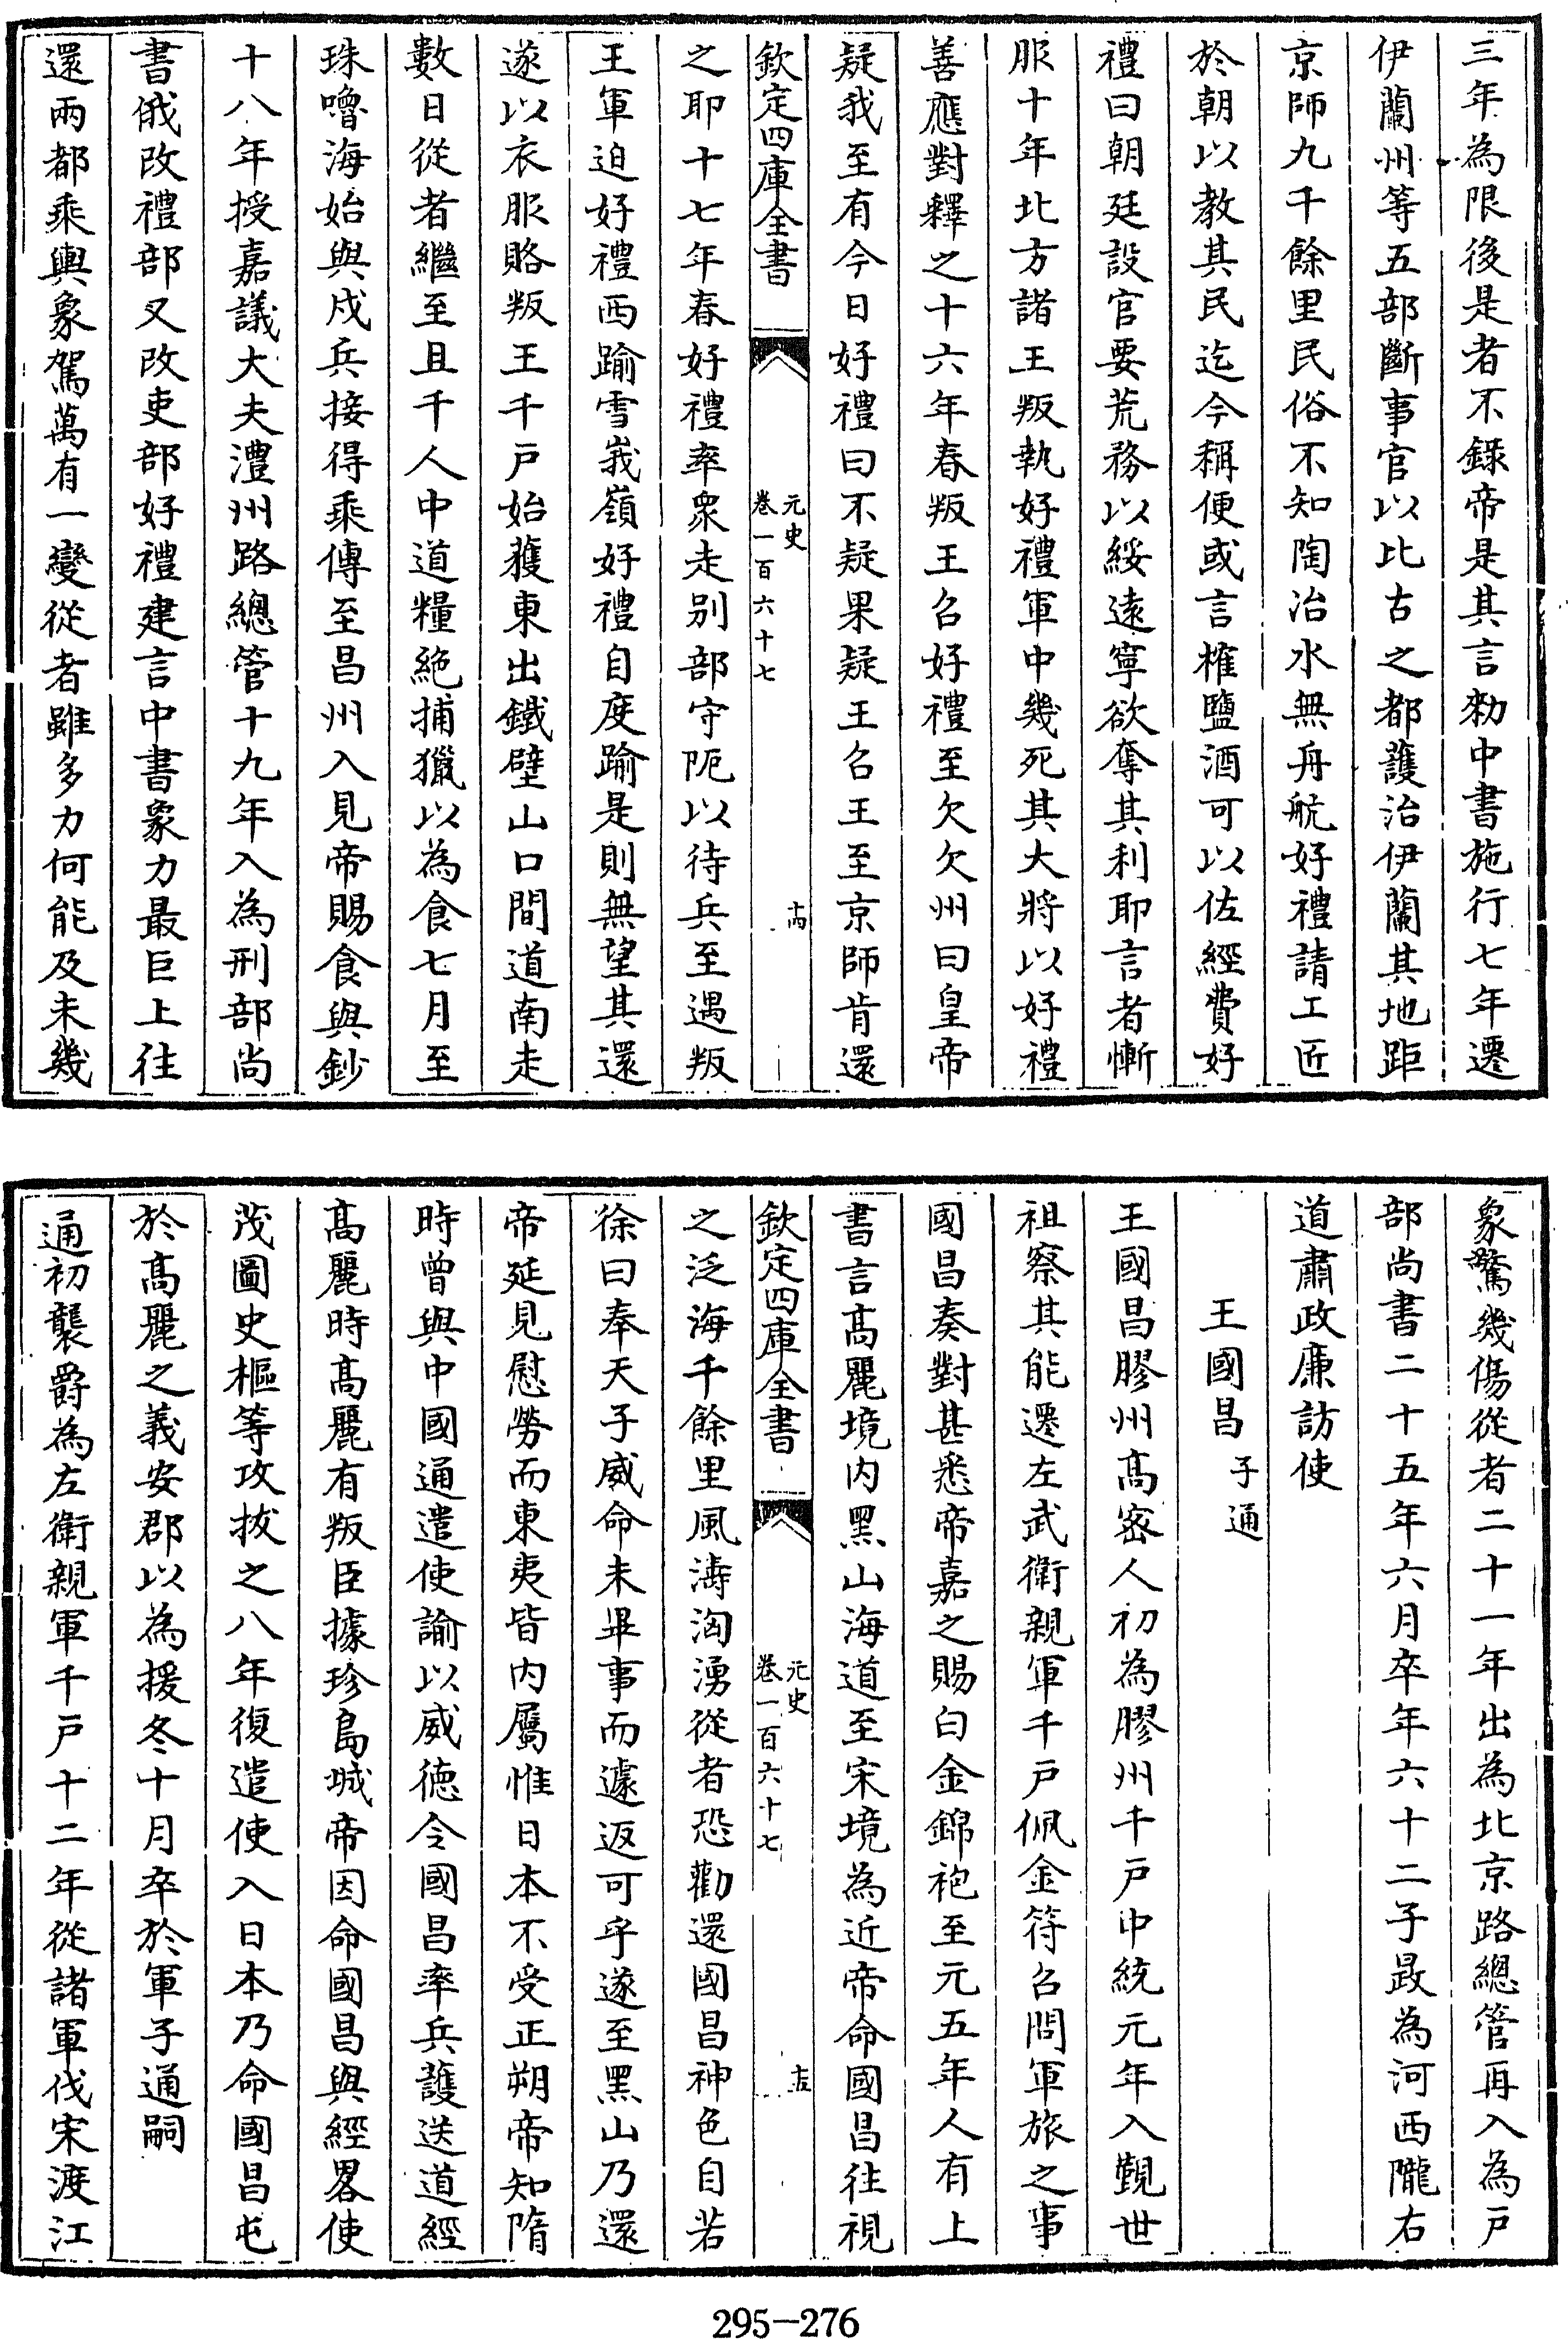 三年為限後是者不錄帝是其言勑中書施行七年遷
伊蘭州等五部斷事官以比古之都護治伊蘭其地距
京師九千餘里民俗不知陶冶水無舟航好禮請工匠
於朝以教其民迄今稱便或言榷鹽酒可以佐經費好
禮曰朝廷設官要荒務以綏遠寧欲奪其利耶言者慚
服十年北方諸王叛執好禮軍中幾死其大將以好禮
善應對釋之十六年春叛王召好禮至欠欠州曰皇帝
疑我至有今日好禮曰不疑果疑王召王至京師肯還
欽定四庫全書
元史
卷一百六十七
十四
之耶十七年春好禮率衆走别部守阨以待兵至遇叛
王軍迫好禮西踰雪峩嶺好禮自度踰是則無望其還
遂以衣服賂叛王千戶始獲東出鐵壁山口間道南走
數日從者繼至且千人中道糧絶捕獵以為食七月至
珠嚕海始與戍兵接得乘傳至昌州入見帝賜食與鈔
十八年授嘉議大夫澧州路總管十九年入為刑部尚
書俄改禮部又改吏部好禮建言中書象力最巨上往
還兩都乘輿象駕萬有一變從者雖多力何能及未幾
象驚幾傷從者二十一年出為北京路總管再入為戶
部尚書二十五年六月卒年六十二子晸為河西隴右
道肅政廉訪使
王國昌 子通
王國昌膠州高密人初為膠州千戶中統元年入覲世
祖察其能遷左武衛親軍千戶佩金符召問軍旅之事
國昌奏對甚悉帝嘉之賜白金錦袍至元五年人有上
書言高麗境内黑山海道至宋境為近帝命國昌往視
欽定四庫全書
元史
卷一百六十七
十五
之泛海千餘里風濤洶湧從者恐勸還國昌神色自若
徐曰奉天子威命未畢事而遽返可乎遂至黑山乃還
帝延見慰勞而東夷皆内屬惟日本不受正朔帝知隋
時曾與中國通遣使諭以威德令國昌率兵護送道經
高麗時高麗有叛臣據珍島城帝因命國昌與經畧使
茂圖史樞等攻拔之八年復遣使入日本乃命國昌屯
於高麗之義安郡以為援冬十月卒於軍子通嗣
通初襲爵為左衛親軍千戶十二年從諸軍伐宋渡江
295-276